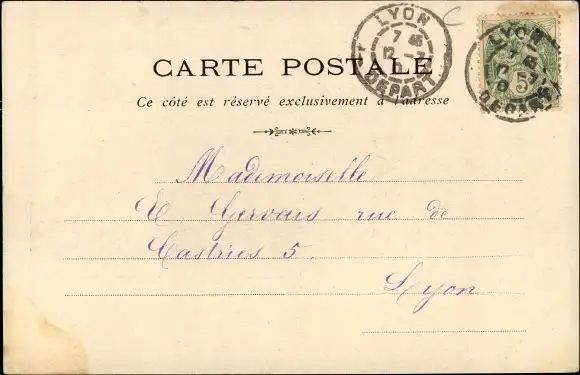 LYON
7 45
12 - 7
DEPART
LYON
5
DEPART
CARTE POSTALE
Ce côté est réservé exclusivement à l'adresse
Mademoiselle
E Gervais rue de
Castries 5.
Lyon